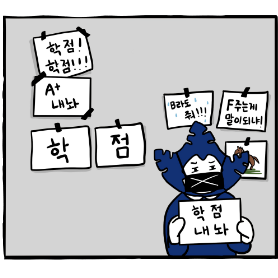 학점!
학점!!!
A+
내놔
학
점
B라도
줘!!!
F주는게
말이되냐!
학점
내놔